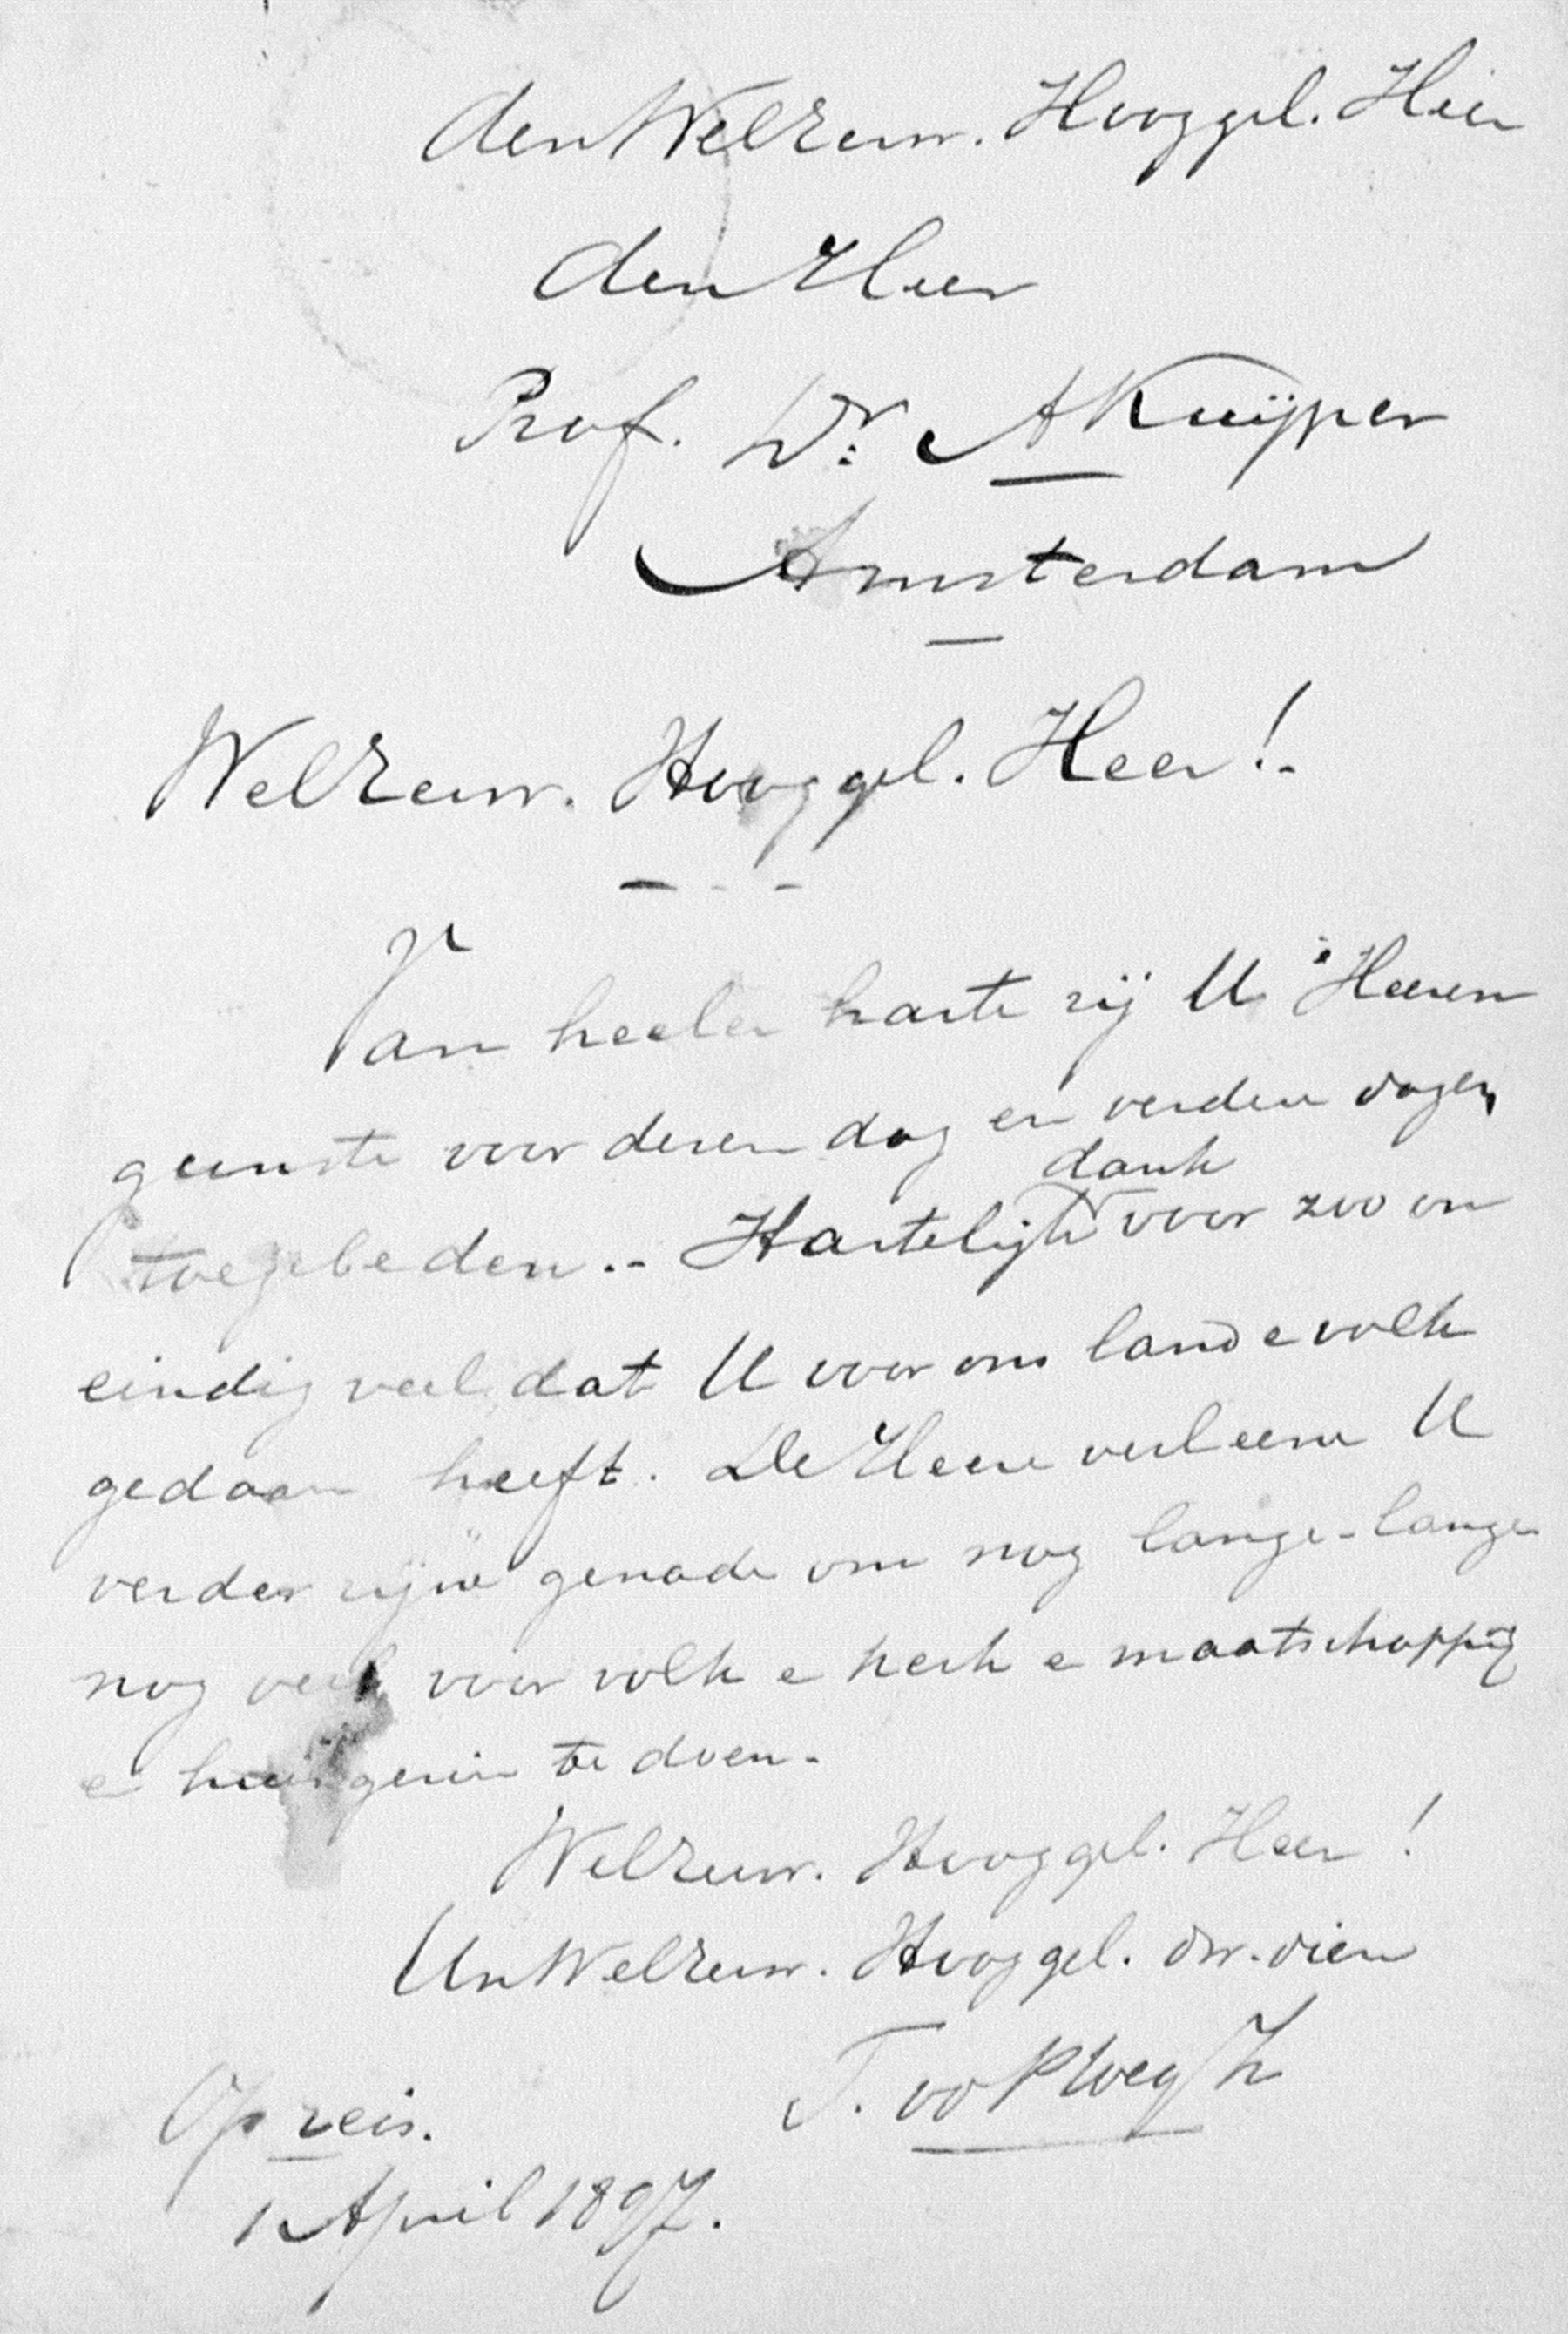 den WelEerw. Hooggel. Heer
den Heer
Prof. Dr. A Kuijper
Amsterdam
WelEerw. Hooggel. Heer!
Van heeler harte zij U 's Heeren
gunste voor dezen dag en verdere dagen
toegebeden.- Hartelijk dank voor zoo on
eindig veel dat U voor ons land e volk
gedaan heeft. De Heere verleene U
verder zijne genade om nog lange-lange
nog veel voor volk e kerk e maatschappij
e huisgezin te doen.
WelEerw. Hooggel. Heer!
Uw WelEerw. Hooggel. dw. dien
Op reis.
1 April 1897.